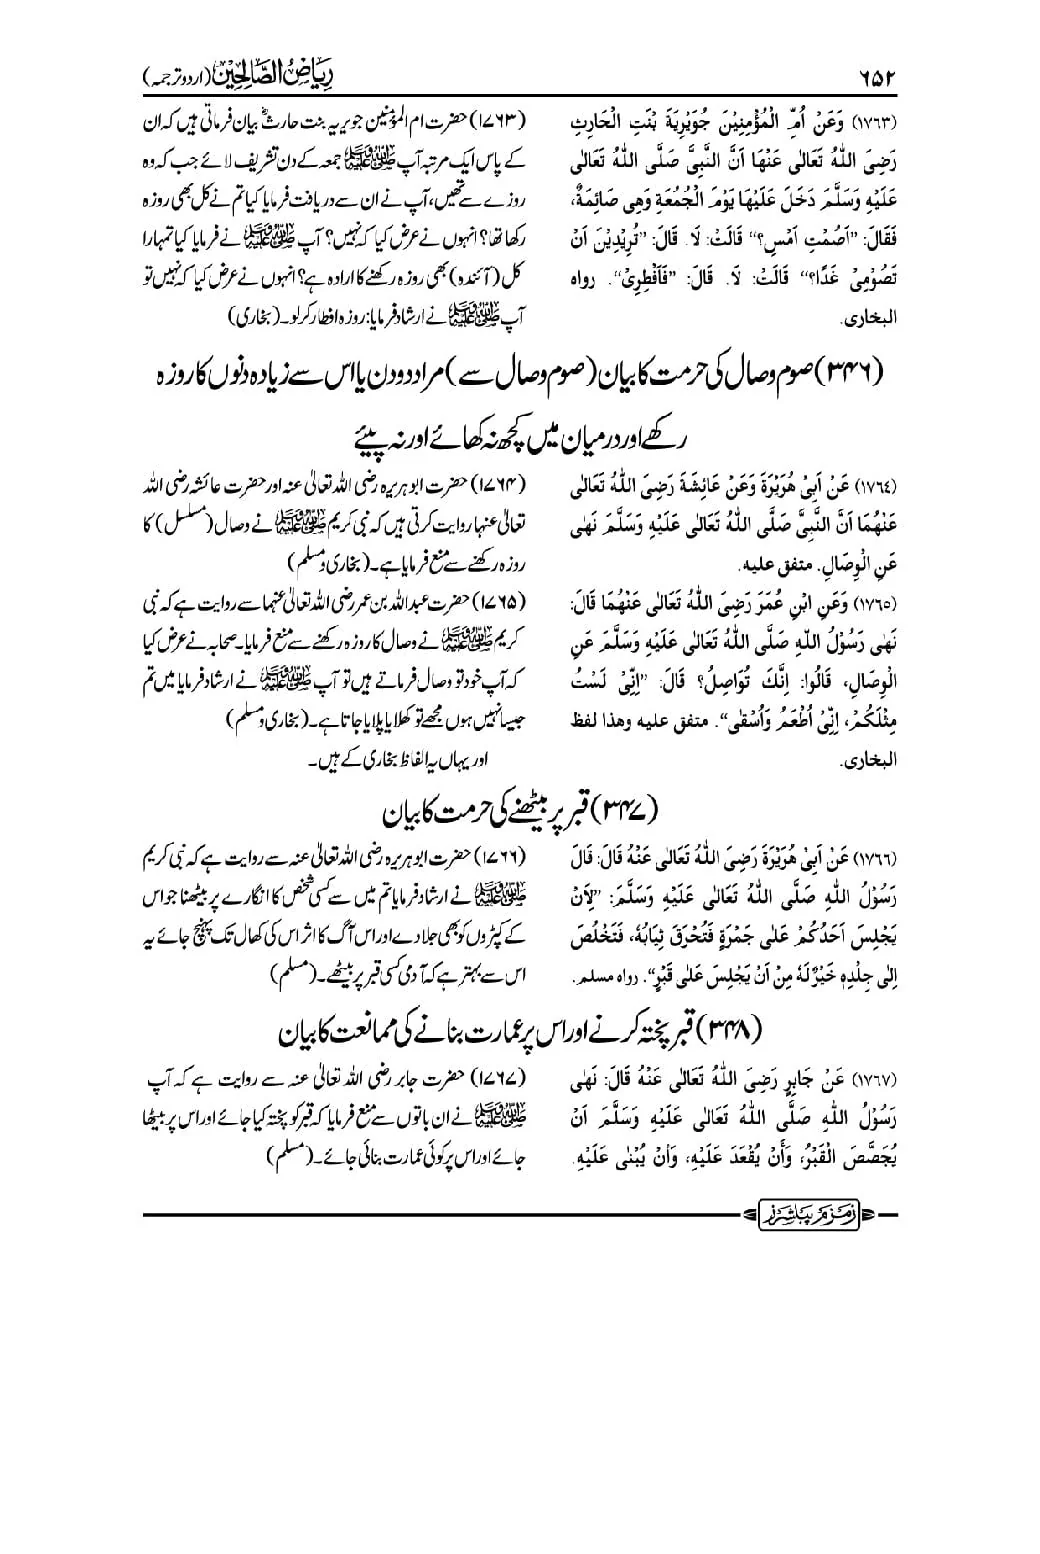 ۶۵۲
ریاض الصّالحین (اردو ترجمہ)
(١٧٦٣) وَعَنْ اُمِّ الْمُؤْمِنِيْنَ جُوَيْرِيَةَ بِنْتِ الْحَارِثِ
رَضِيَ اللّٰهُ تَعَالٰى عَنْهَا اَنَّ النَّبِيَّ صَلَّى اللّٰهُ تَعَالٰى
عَلَيْهِ وَسَلَّمَ دَخَلَ عَلَيْهَا يَوْمَ الْجُمُعَةِ وَهِيَ صَائِمَةٌ،
فَقَالَ: ”اَصُمْتِ اَمْسِ؟“ قَالَتْ: لَا. قَالَ: ”تُرِيْدِيْنَ اَنْ
تَصُوْمِيْ غَدًا؟“ قَالَتْ: لَا. قَالَ: ”فَاَفْطِرِيْ“. رواه
البخاری.
(۱۷۶۳) حضرت ام المؤمنین جویریہ بنت حارثؓ بیان فرماتی ہیں کہ ان
کے پاس ایک مرتبہ آپ ﷺ جمعہ کے دن تشریف لائے جب کہ وہ
روزے سے تھیں، آپ نے ان سے دریافت فرمایا کیا تم نے کل بھی روزہ
رکھا تھا؟ انہوں نے عرض کیا کہ نہیں؟ آپ ﷺ نے فرمایا کیا تمہارا
کل (آئندہ) بھی روزہ رکھنے کا ارادہ ہے؟ انہوں نے عرض کیا کہ نہیں تو
آپ ﷺ نے ارشاد فرمایا: روزہ افطار کر لو۔ (بخاری)
(۳۴۶) صوم وصال کی حرمت کا بیان (صوم وصال سے) مراد دو دن یا اس سے زیادہ دنوں کا روزہ
رکھے اور درمیان میں کچھ نہ کھائے اور نہ پیئے
(١٧٦٤) عَنْ اَبِيْ هُرَيْرَةَ وَعَنْ عَائِشَةَ رَضِيَ اللّٰهُ تَعَالٰى
عَنْهُمَا اَنَّ النَّبِيَّ صَلَّى اللّٰهُ تَعَالٰى عَلَيْهِ وَسَلَّمَ نَهٰى
عَنِ الْوِصَالِ. متفق علیه.
(۱۷۶۴) حضرت ابوہریرہ رضی اللہ تعالیٰ عنہ اور حضرت عائشہ رضی اللہ
تعالیٰ عنہا روایت کرتی ہیں کہ نبی کریم ﷺ نے وصال (مسلسل) کا
روزہ رکھنے سے منع فرمایا ہے۔ (بخاری و مسلم)
(١٧٦٥) وَعَنِ ابْنِ عُمَرَ رَضِيَ اللّٰهُ تَعَالٰى عَنْهُمَا قَالَ:
نَهٰى رَسُوْلُ اللّٰهِ صَلَّى اللّٰهُ تَعَالٰى عَلَيْهِ وَسَلَّمَ عَنِ
الْوِصَالِ، قَالُوْا: اِنَّكَ تُوَاصِلُ؟ قَالَ: ”اِنِّيْ لَسْتُ
مِثْلَكُمْ، اِنِّيْ اُطْعَمُ وَاُسْقٰى“. متفق علیه وهذا لفظ
البخاری.
(۱۷۶۵) حضرت عبداللہ بن عمر رضی اللہ تعالیٰ عنہما سے روایت ہے کہ نبی
کریم ﷺ نے وصال کا روزہ رکھنے سے منع فرمایا۔ صحابہ نے عرض کیا
کہ آپ خود تو وصال فرماتے ہیں تو آپ ﷺ نے ارشاد فرمایا میں تم
جیسا نہیں ہوں مجھے تو کھلایا پلایا جاتا ہے۔ (بخاری و مسلم)
اور یہاں یہ الفاظ بخاری کے ہیں۔
(۳۴۷) قبر پر بیٹھنے کی حرمت کا بیان
(١٧٦٦) عَنْ اَبِيْ هُرَيْرَةَ رَضِيَ اللّٰهُ تَعَالٰى عَنْهُ قَالَ: قَالَ
رَسُوْلُ اللّٰهِ صَلَّى اللّٰهُ تَعَالٰى عَلَيْهِ وَسَلَّمَ: ”لِاَنْ
يَجْلِسَ اَحَدُكُمْ عَلٰى جَمْرَةٍ فَتُحْرَقَ ثِيَابُهُ، فَتَخْلُصَ
اِلٰى جِلْدِهٖ خَيْرٌ لَهُ مِنْ اَنْ يَجْلِسَ عَلٰى قَبْرٍ“. رواه مسلم.
(۱۷۶۶) حضرت ابوہریرہ رضی اللہ تعالیٰ عنہ سے روایت ہے کہ نبی کریم
ﷺ نے ارشاد فرمایا تم میں سے کسی شخص کا انگارے پر بیٹھنا جو اس
کے کپڑوں کو بھی جلا دے اور اس آگ کا اثر اس کی کھال تک پہنچ جائے یہ
اس سے بہتر ہے کہ آدمی کسی قبر پر بیٹھے۔ (مسلم)
(۳۴۸) قبر پختہ کرنے اور اس پر عمارت بنانے کی ممانعت کا بیان
(١٧٦٧) عَنْ جَابِرٍ رَضِيَ اللّٰهُ تَعَالٰى عَنْهُ قَالَ: نَهٰى
رَسُوْلُ اللّٰهِ صَلَّى اللّٰهُ تَعَالٰى عَلَيْهِ وَسَلَّمَ اَنْ
يُجَصَّصَ الْقَبْرُ، وَأَنْ يُقْعَدَ عَلَيْهِ، وَاَنْ يُبْنٰى عَلَيْهِ.
(۱۷۶۷) حضرت جابر رضی اللہ تعالیٰ عنہ سے روایت ہے کہ آپ
ﷺ نے ان باتوں سے منع فرمایا کہ قبر کو پختہ کیا جائے اور اس پر بیٹھا
جائے اور اس پر کوئی عمارت بنائی جائے۔ (مسلم)
زمزم پبلشرز